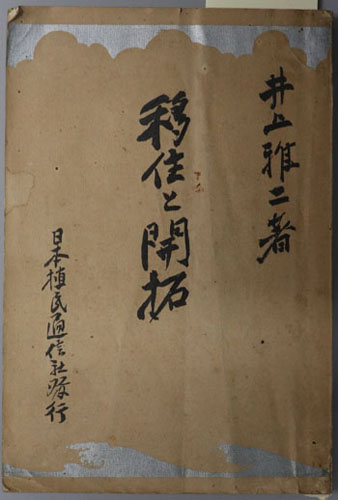 井上雅二著
移住と開拓
日本植民通信社発行